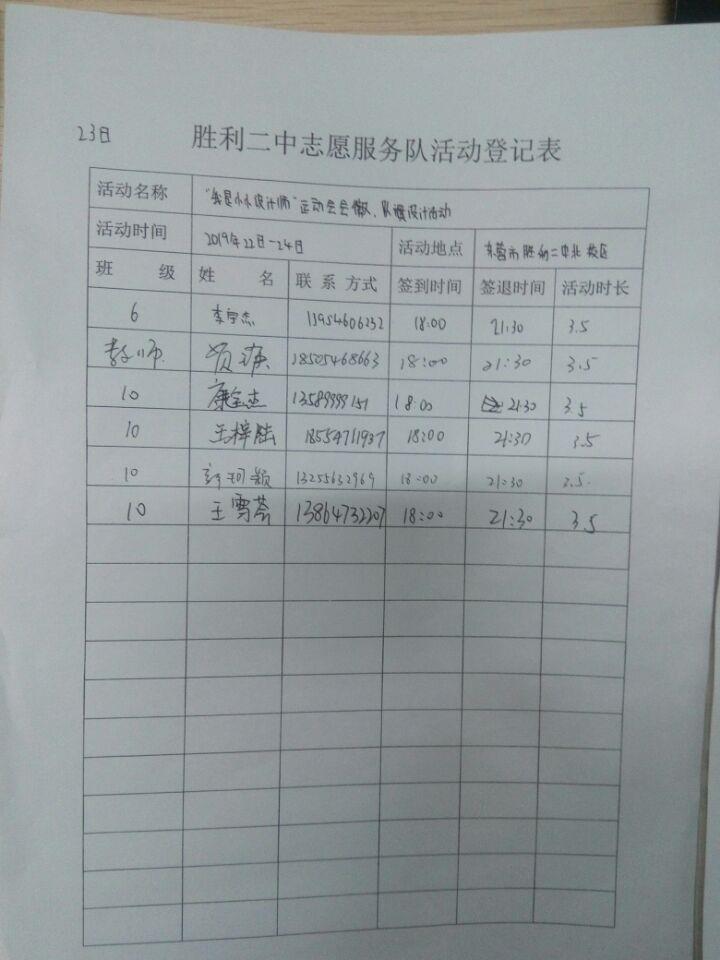 23日
胜利二中志愿服务队活动登记表
活动名称 "我是小小设计师"运动会会徽、队旗设计活动
活动时间 2019年22日-24日 活动地点 东营市胜利二中北校区
班 级 姓 名 联 系 方式 签到时间 签退时间 活动时长
6 李宇杰 13954606232 18:00 21:30 3.5
18505468663 18:00 21:30 3.5
10 康金杰 13589999151 18:00 21:30 3.5
10 王梓陆 18554711937 18:00 21:30 3.5
10 许珂颖 13255632969 18:00 21:30 3.5
10 王雪荟 13864732207 18:00 21:30 3.5